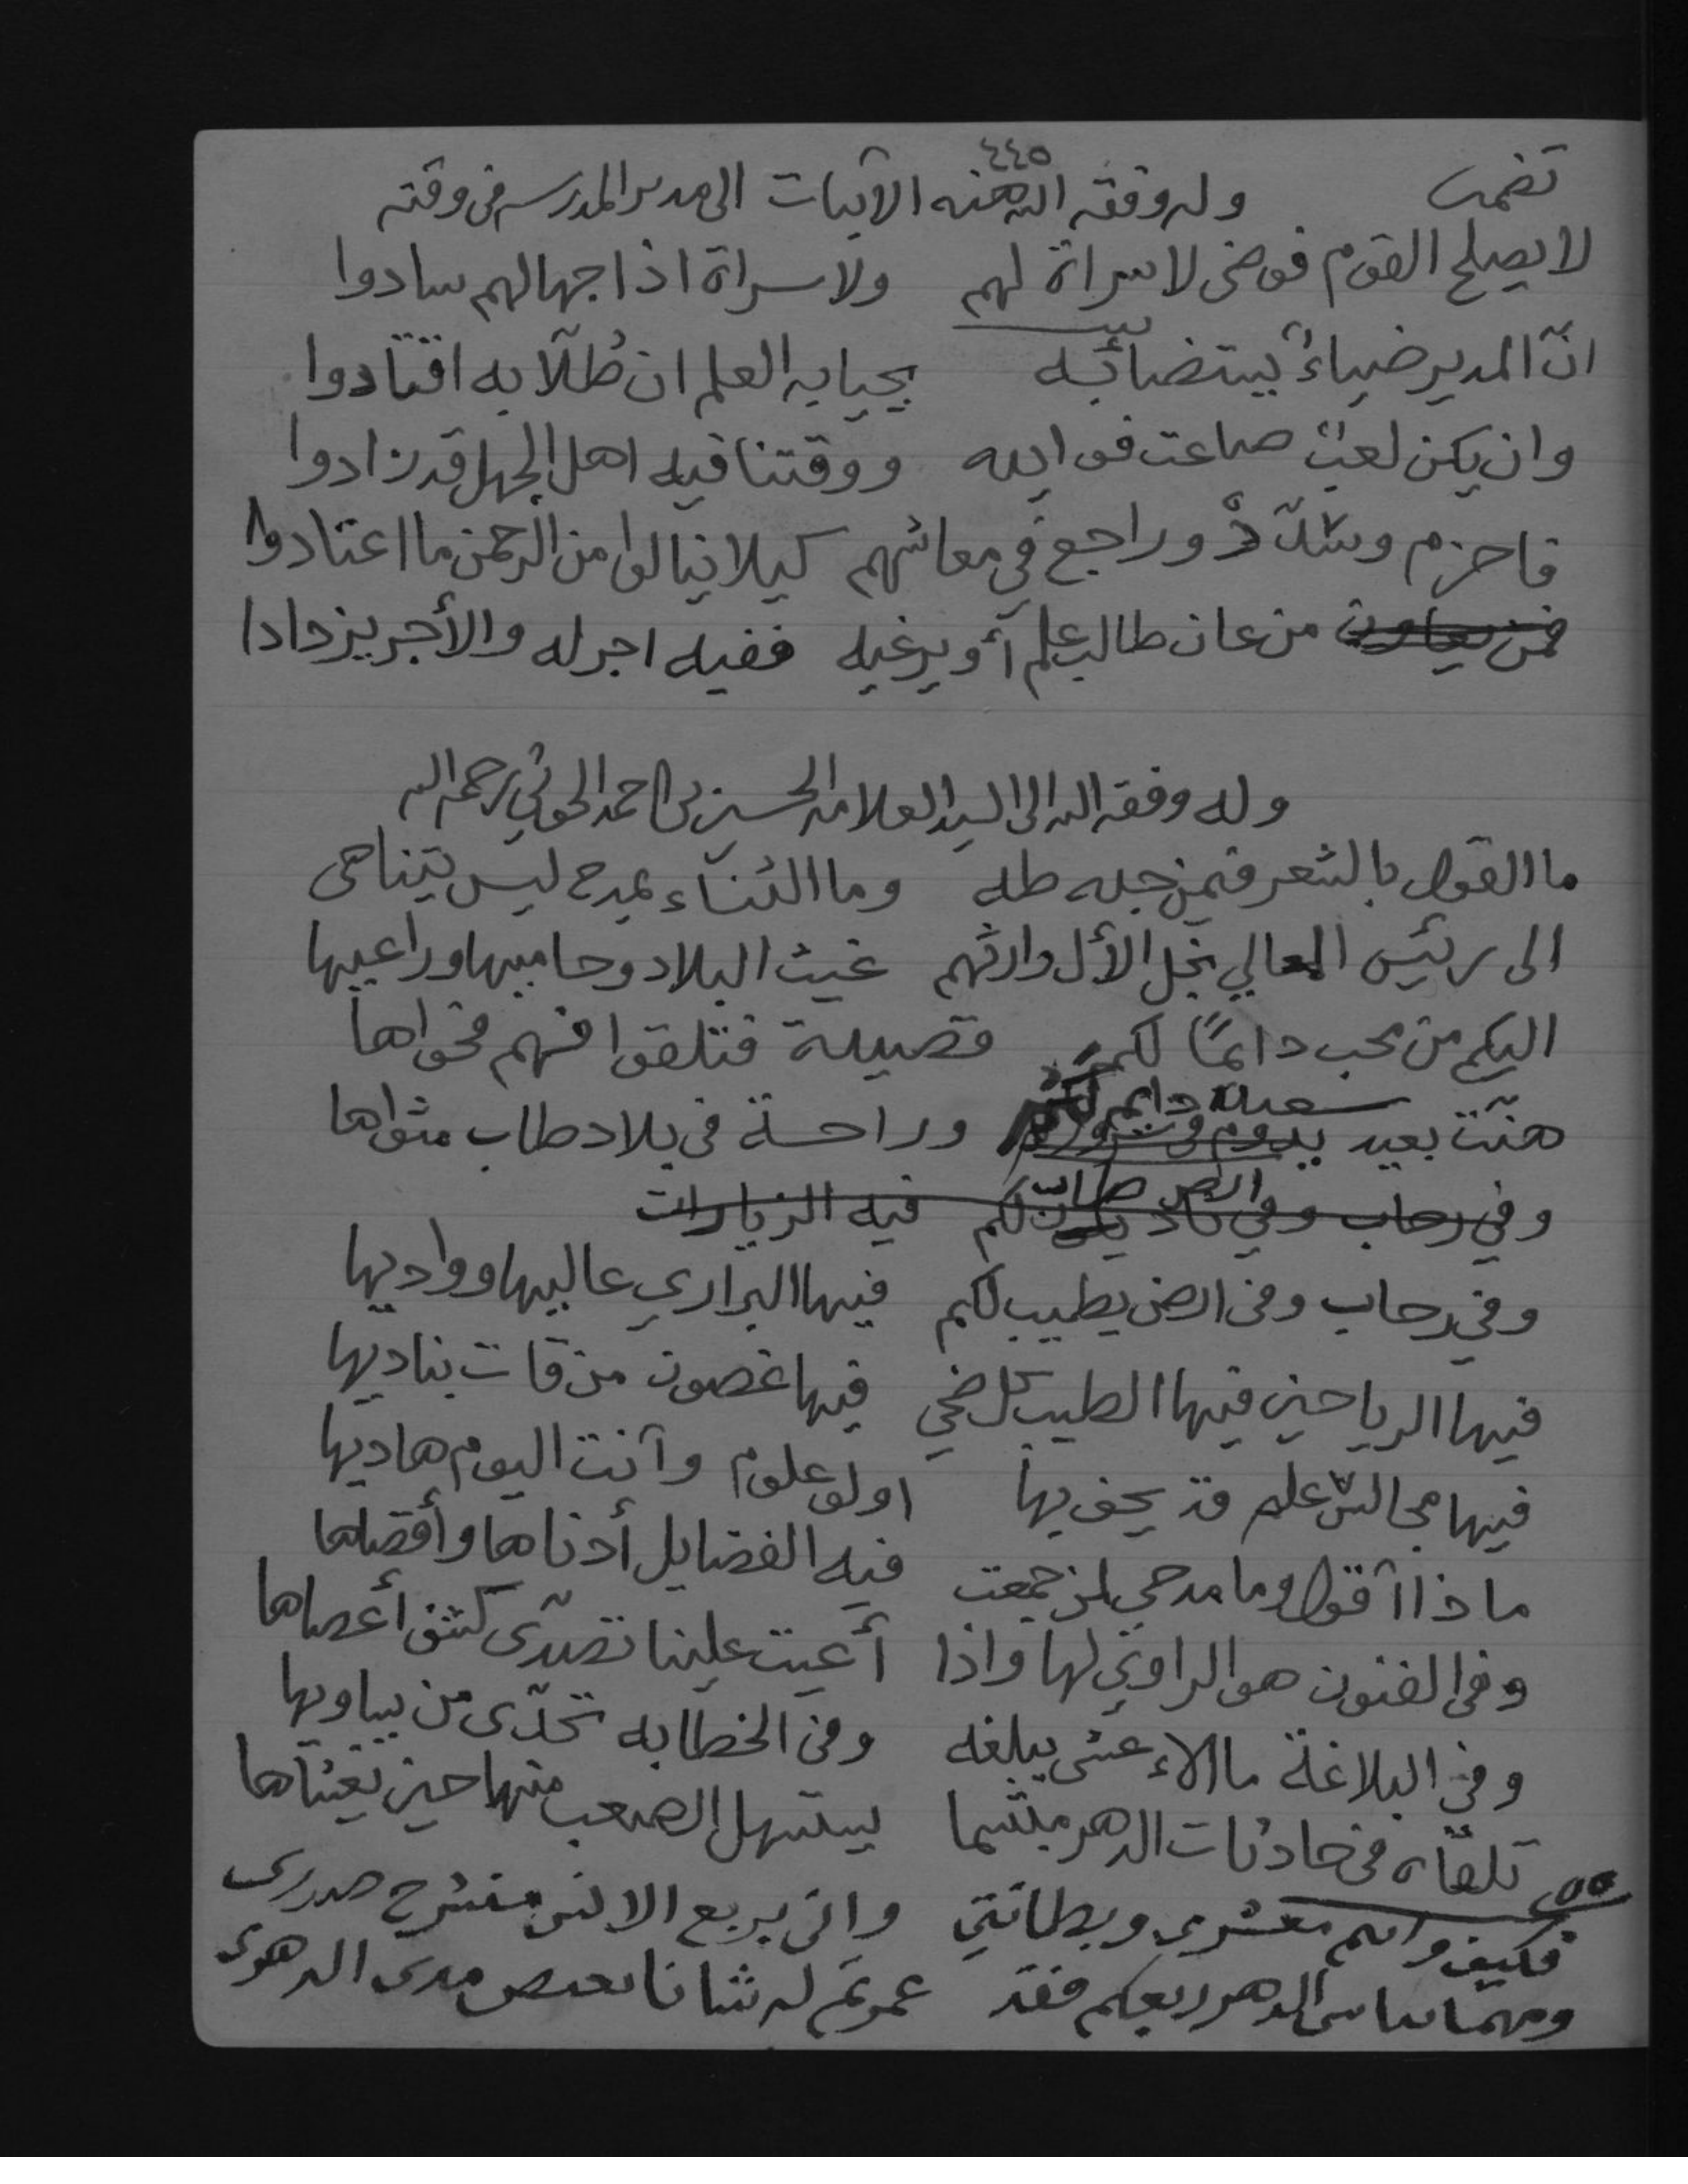 ٤٤٥
تضمين وله وفقه الله هذه الأبيات الى مدير المدرسه في وقته
لا يصلح القوم فوضى لا سراة لهم ولا سراة اذا جهالهم سادوا
انّ المدير ضياءٌ يستضائبه يحيا به العلم ان طُلّابه اقتادوا
وان يكن لعبٌ ضاعت فوايده ووقتنا فيه اهل الجهل قد زادوا
فاحزم وشدّدْ وراجع في معاشهم كيلا ينالوا من الرحمن ما اعتادوا
فمن يعاون من عان طالب علم أو يرغبه ففيه اجر له والأجر يزدادا
وله وفقه الله الى السيد العلامه الحسين بن احمد الحوثي رحمه الله
ما القول بالشعر فيمن جده طه وما الثناء بمدح ليس يتناهى
الى رئيس المعالي نجل الأل وارثهم غيث البلاد وحاميها وراعيها
اليكم من محب دائمًا لكم قصيدة فتلقوا فهم فحواها
هنّت بعيد سعيد دايم لكم وراحة في بلاد طاب مثواها
وفي رحاب وفي لكم فيه الزيارات
وفي رحاب وفي ارض يطيب لكم فيها البراري عاليها وواديها
فيها الرياحين فيها الطيب كل ضحي فيها غصون من قات بناديها
فيها مجالس علم قد يحف بها اولو علوم وآنت اليوم هاديها
ماذا آقول وما مدحي لمن جمعت فيه الفضايل أدناها وأقصاها
وفي الفنون هو الراوي لها واذا أعيت علينا تصدّى كشف أعصاها
وفي البلاغة ما الاعشى يبلغه وفي الخطابه تحدّى من يساويها
تلقاه في حادثات الدهر مبتسما يستسهل الصعب منها حين يغشاها
فكيف وانتم معشري وبطانتي واني بربع الانس منشرح صدري
ومهما الدهر ربعكم فقد عمرتم له شانا مدى الدهر